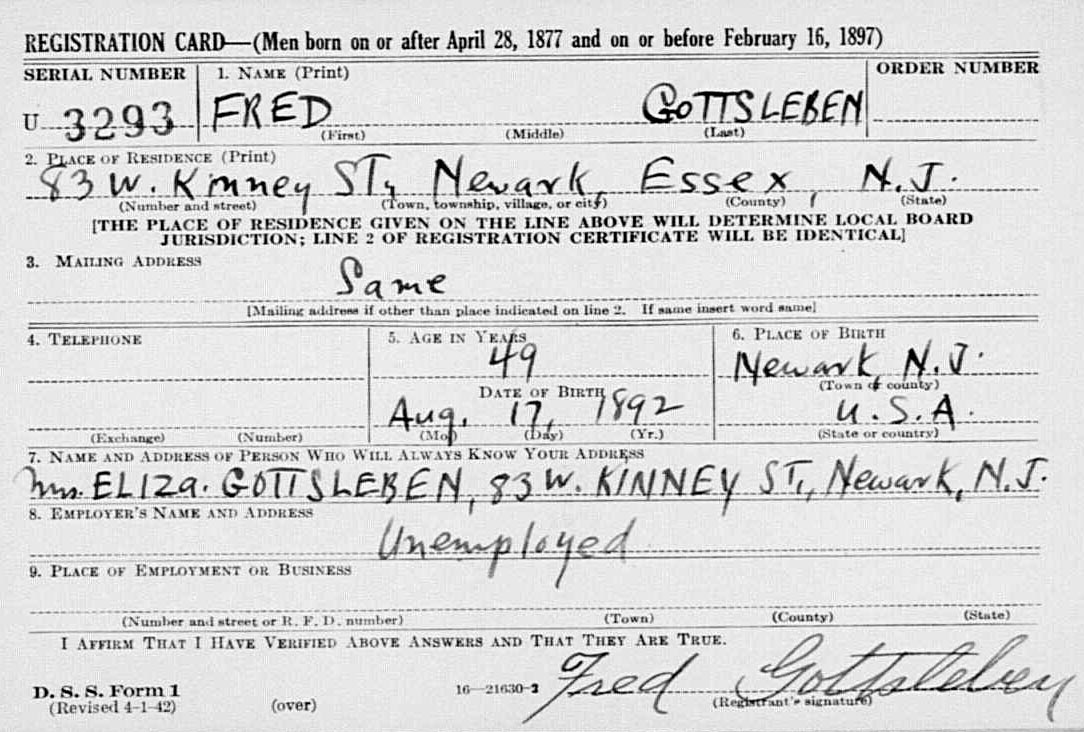 REGISTRATION CARD—(Men born on or after April 28, 1877 and on or before February 16, 1897)
SERIAL NUMBER 1. NAME (Print) ORDER NUMBER
U 3293 FRED GOTTSLEBEN
(First) (Middle) (Last)
2. PLACE OF RESIDENCE (Print)
83 W. Kinney ST, Newark, Essex, N.J.
(Number and street) (Town, township, village, or city) (County) (State)
[THE PLACE OF RESIDENCE GIVEN ON THE LINE ABOVE WILL DETERMINE LOCAL BOARD
JURISDICTION; LINE 2 OF REGISTRATION CERTIFICATE WILL BE IDENTICAL]
3. MAILING ADDRESS
Same
[Mailing address if other than place indicated on line 2. If same insert word same]
4. TELEPHONE 5. AGE IN YEARS 6. PLACE OF BIRTH
49 Newark, N.J.
DATE OF BIRTH (Town or county)
Aug. 17, 1892 U.S.A.
(Exchange) (Number) (Mo.) (Day) (Yr.) (State or country)
7. NAME AND ADDRESS OF PERSON WHO WILL ALWAYS KNOW YOUR ADDRESS
Mrs. ELIZA. GOTTSLEBEN, 83 W. KINNEY ST., Newark, N.J.
8. EMPLOYER'S NAME AND ADDRESS
Unemployed
9. PLACE OF EMPLOYMENT OR BUSINESS
(Number and street or R. F. D. number) (Town) (County) (State)
I AFFIRM THAT I HAVE VERIFIED ABOVE ANSWERS AND THAT THEY ARE TRUE.
Fred Gottsleben
D. S. S. Form 1 16—21630-2
(Revised 4-1-42) (over) (Registrant's signature)